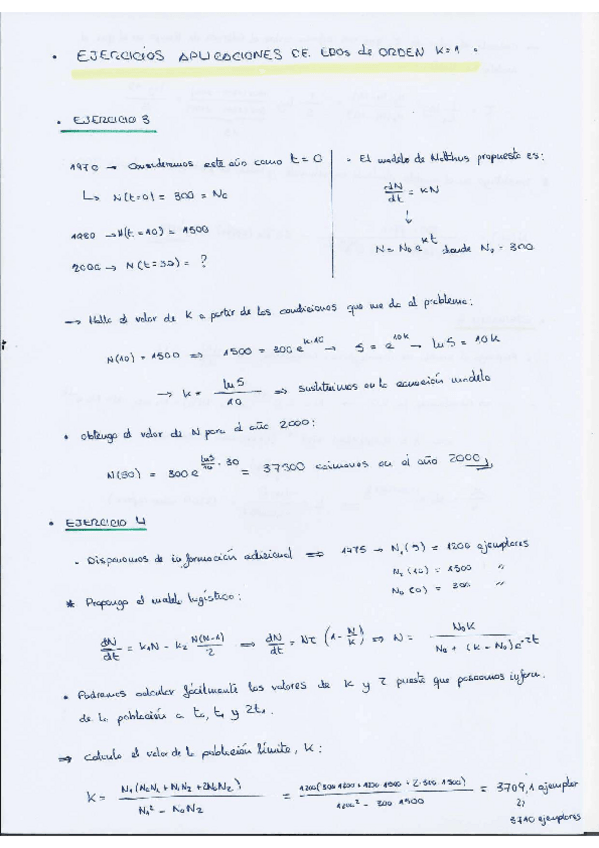 • EJERCICIOS APLICACIONES DE EDOs de ORDEN K=1.
• EJERCICIO 3
1970 → Consideramos este año como t = 0
↳ N(t=0) = 300 = N₀
1980 → N(t=10) = 1500
2000 → N(t=30) = ?
• El modelo de Malthus propuesto es:
dN/dt = KN
↓
N = N₀ e^{Kt} donde N₀ = 300
→ Hallo el valor de K a partir de las condiciones que me da el problema:
N(10) = 1500 ⇒ 1500 = 300 e^{K·10} → 5 = e^{10K} → ln5 = 10K
→ K = ln5/10 ⇒ sustituimos en la ecuación modelo
• obtengo el valor de N para el año 2000:
N(30) = 300 e^{ln5/10 · 30} = 37500 en el año 2000
• EJERCICIO 4
- Disponemos de información adicional ⇒ 1975 → N₁(5) = 1200 ejemplares
N₂(10) = 1500 "
N₀(0) = 300 "
* Propongo el modelo logístico:
dN/dt = K₁N - K₂ N(N-1)/2 ⇒ dN/dt = Nτ (1 - N/K) ⇒ N = N₀K / N₀ + (K - N₀)e^{-τt}
• Podremos calcular fácilmente los valores de K y τ puesto que poseemos inform.
de la población a t₀, t₁ y 2t₁.
⇒ Calculo el valor de la población límite, K:
K = N₁(N₀N₁ + N₁N₂ + 2N₀N₂) / N₁² - N₀N₂ = 1200(300·1200 + 1200·1500 + 2·300·1500) / 1200² - 300·1500 = 3709,1 ejemplar
3710 ejemplares